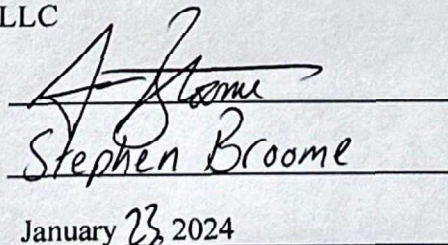 LLC
Stephen Broome
January 23, 2024